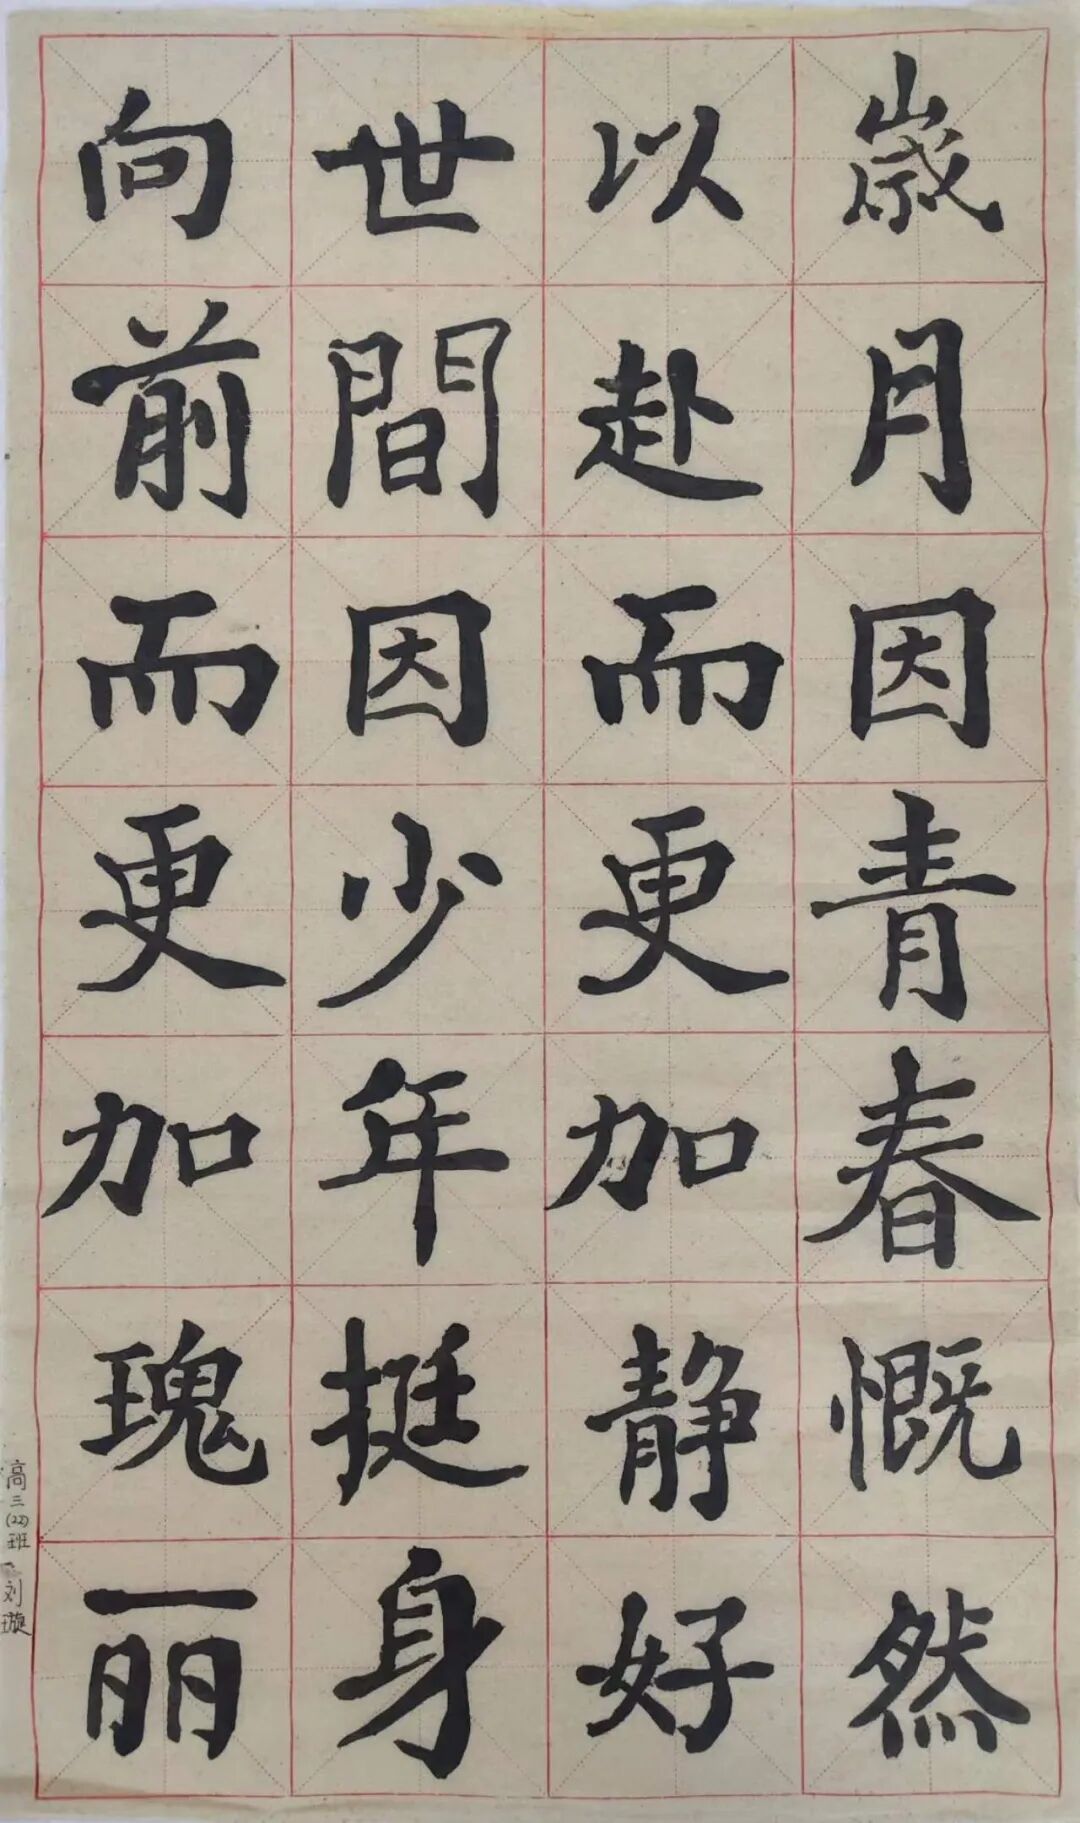 歲月因青春慨然
以赴而更加静好
世間因少年挺身
向前而更加瑰丽
高三(22)班 刘璇